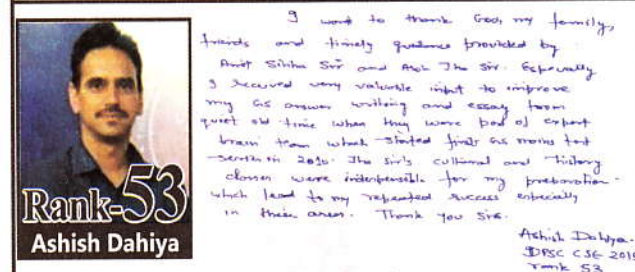 I want to thank God, my family,
friends and timely guidance provided by
Amit Sinha Sir and Jha Sir. Especially
I received very valuable input to improve
my GS answer writing and essay from
quiet old time when they were part of expert
brain team which started first GS mains test
series in 2010. Jha sir's cultural and history
classes were indespensible for my preparation.
which lead to my repeated success especially
in these areas. Thank you Sirs.
Ashish Dahiya.
UPSC CSE 2015
rank 53
Rank-53
Ashish Dahiya